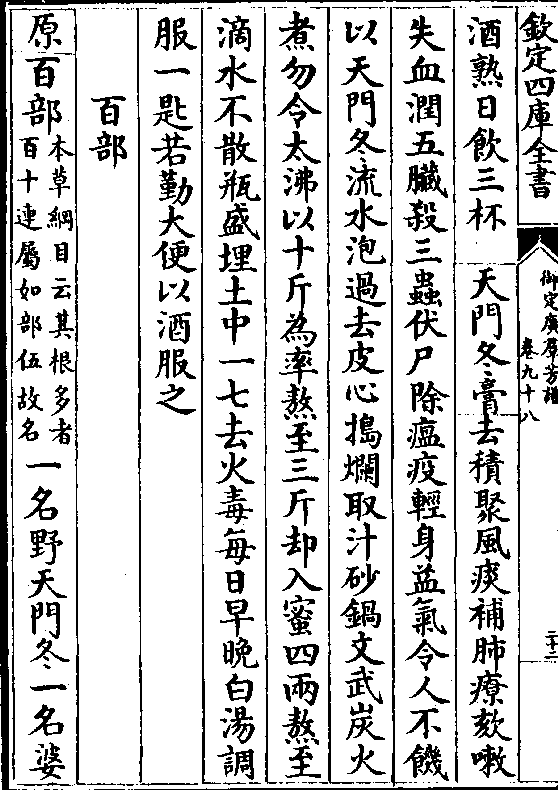 欽定四庫全書
御定廣羣芳譜
卷九十八
二十二
酒熟日飲三杯 天門冬膏去積聚風痰補肺療欬嗽
失血潤五臟殺三蟲伏尸除瘟疫輕身益氣令人不饑
以天門冬流水泡過去皮心搗爛取汁砂鍋文武炭火
煮勿令太沸以十斤為率熬至三斤却入蜜四兩熬至
滴水不散瓶盛埋土中一七去火毒每日早晚白湯調
服一匙若動大便以酒服之
百部
原百部本草綱目云其根多者百十連屬如部伍故名一名野天門冬一名婆